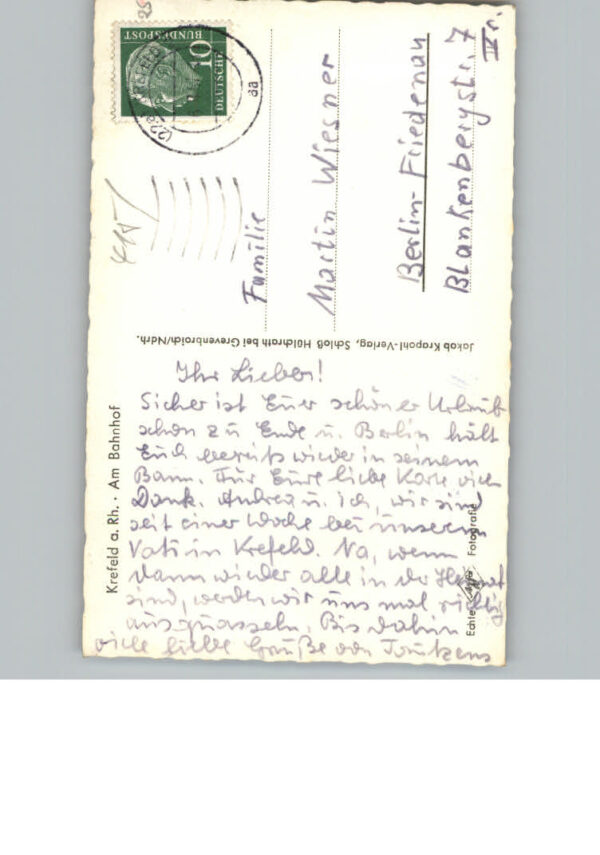 Krefeld a. Rh. · Am Bahnhof
Ihr Lieben!
Sicher ist Euer schöner Urlaub
schon zu Ende u. Berlin hält
Euch bereits wieder in seinem
Bann. Für Eure liebe Karte vielen
Dank. Andrea u. ich, wir sind
seit einer Woche bei unserem
Vati in Krefeld. Na, wenn
dann wieder alle in der Heimat
sind, werden wir uns mal richtig
ausquasseln. Bis dahin
viele liebe Grüße von
Echte Fotografie
Jakob Krapohl-Verlag, Schloß Hülchrath bei Grevenbroich/Ndrh.
DEUTSCHE
BUNDESPOST
10
aa
25
Familie
Martin Wiesner
Berlin-Friedenau
Blankenbergstr. 7